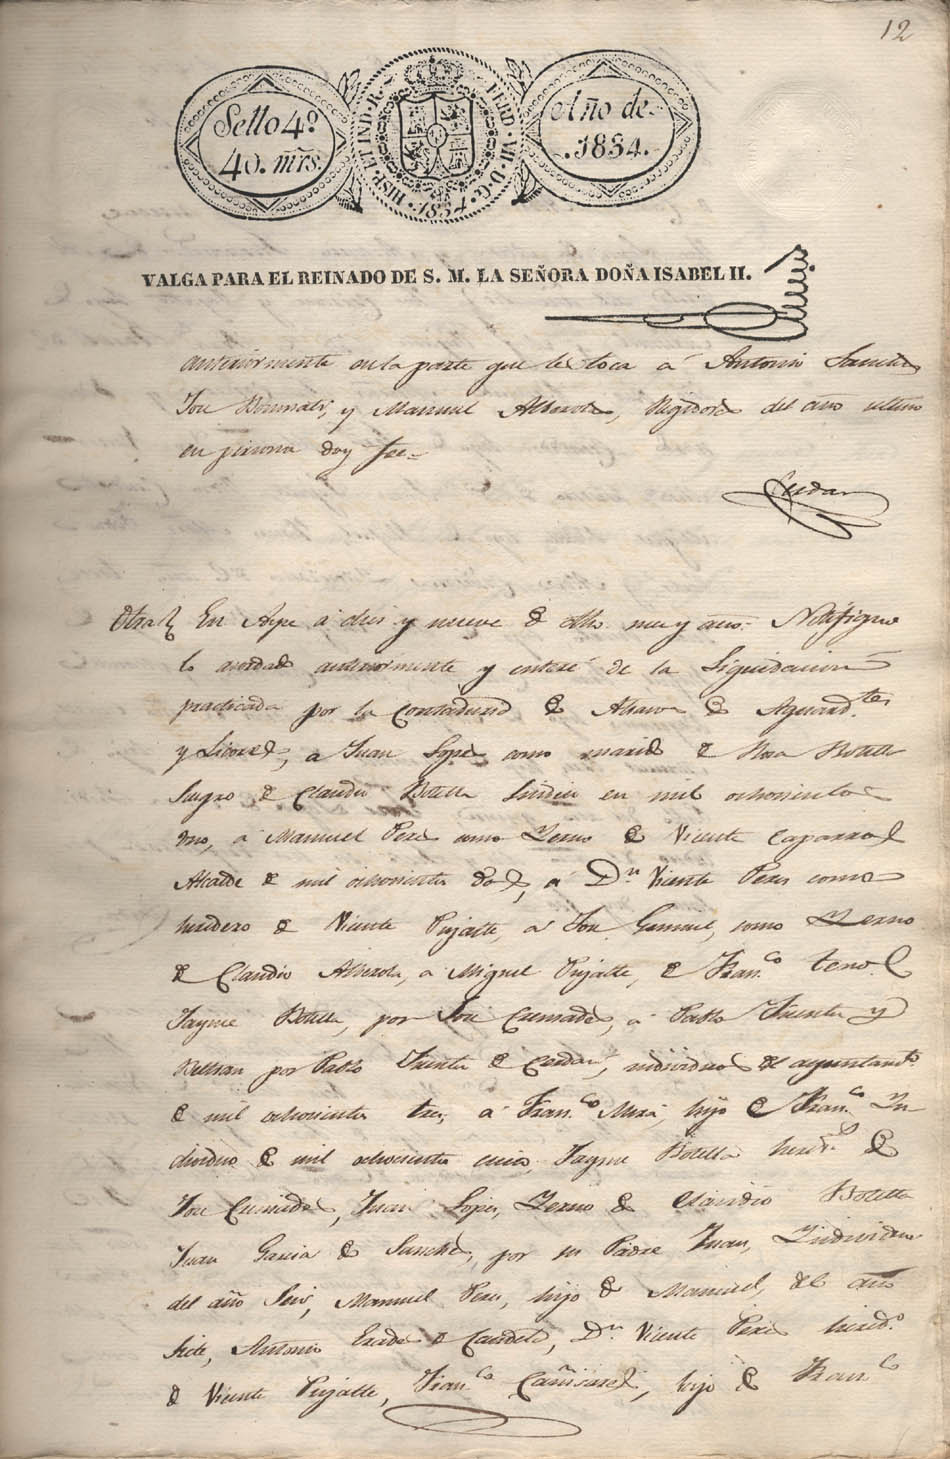 12
Sello 4º
40. mrs.
HISP. ET IND. R.
FERD. VII. D. G.
1834.
Año de
1834.
VALGA PARA EL REINADO DE S. M. LA SEÑORA DOÑA ISABEL II.
anteriormente en la parte que les toca a Antonio Sanchez
Jose Bonmati, y Manuel Alberola, Regidores del año ultimo
en persona doy fee=
Cerdan
Otra En Aspe a dies y nueve de dho mes y año. Notifique
lo acordado anteriormente y enteré de la Liquidacion
practicada por la Contaduria de Aguardtes
y Licores, a Juan Lopez como marido de Rosa Botella
Suegro de Claudio Botella Sindico en mil ochocientos
dno, a Manuel Perez como Yerno de Vicente Caparros
Alcalde de mil ochocientos dos, a Dn Vicente Perez como
heredero de Vicente Pujalte, a Jose como Yerno
de Claudio Alberola, a Miguel Pujalte, de Franco
Jayme Botella, por Jose Cremades, a Pablo Fuentes y
Beltran por Pablo Fuentes de Cerdan, individuos del ayuntamto
de mil ochocientos tres, a Franco Mira, hijo de Franco In
dividuo de mil ochocientos cinco, Jayme Botella heredo de
Jose Cremades, Juan Lopez, Yerno de Claudio Botella
Juan Garcia de Sanchez, por su Padre Juan, Yndividuos
del año Seis, Manuel Perez, hijo de Manuel, del año
Siete, Antonio de Candela, Dn Vicente Perez heredo
de Vicente Pujalte, Franco Cañizares, hijo de Franco